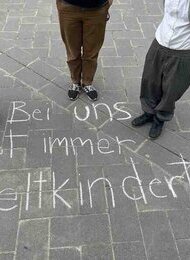 Bei uns
t immer
eltkindert